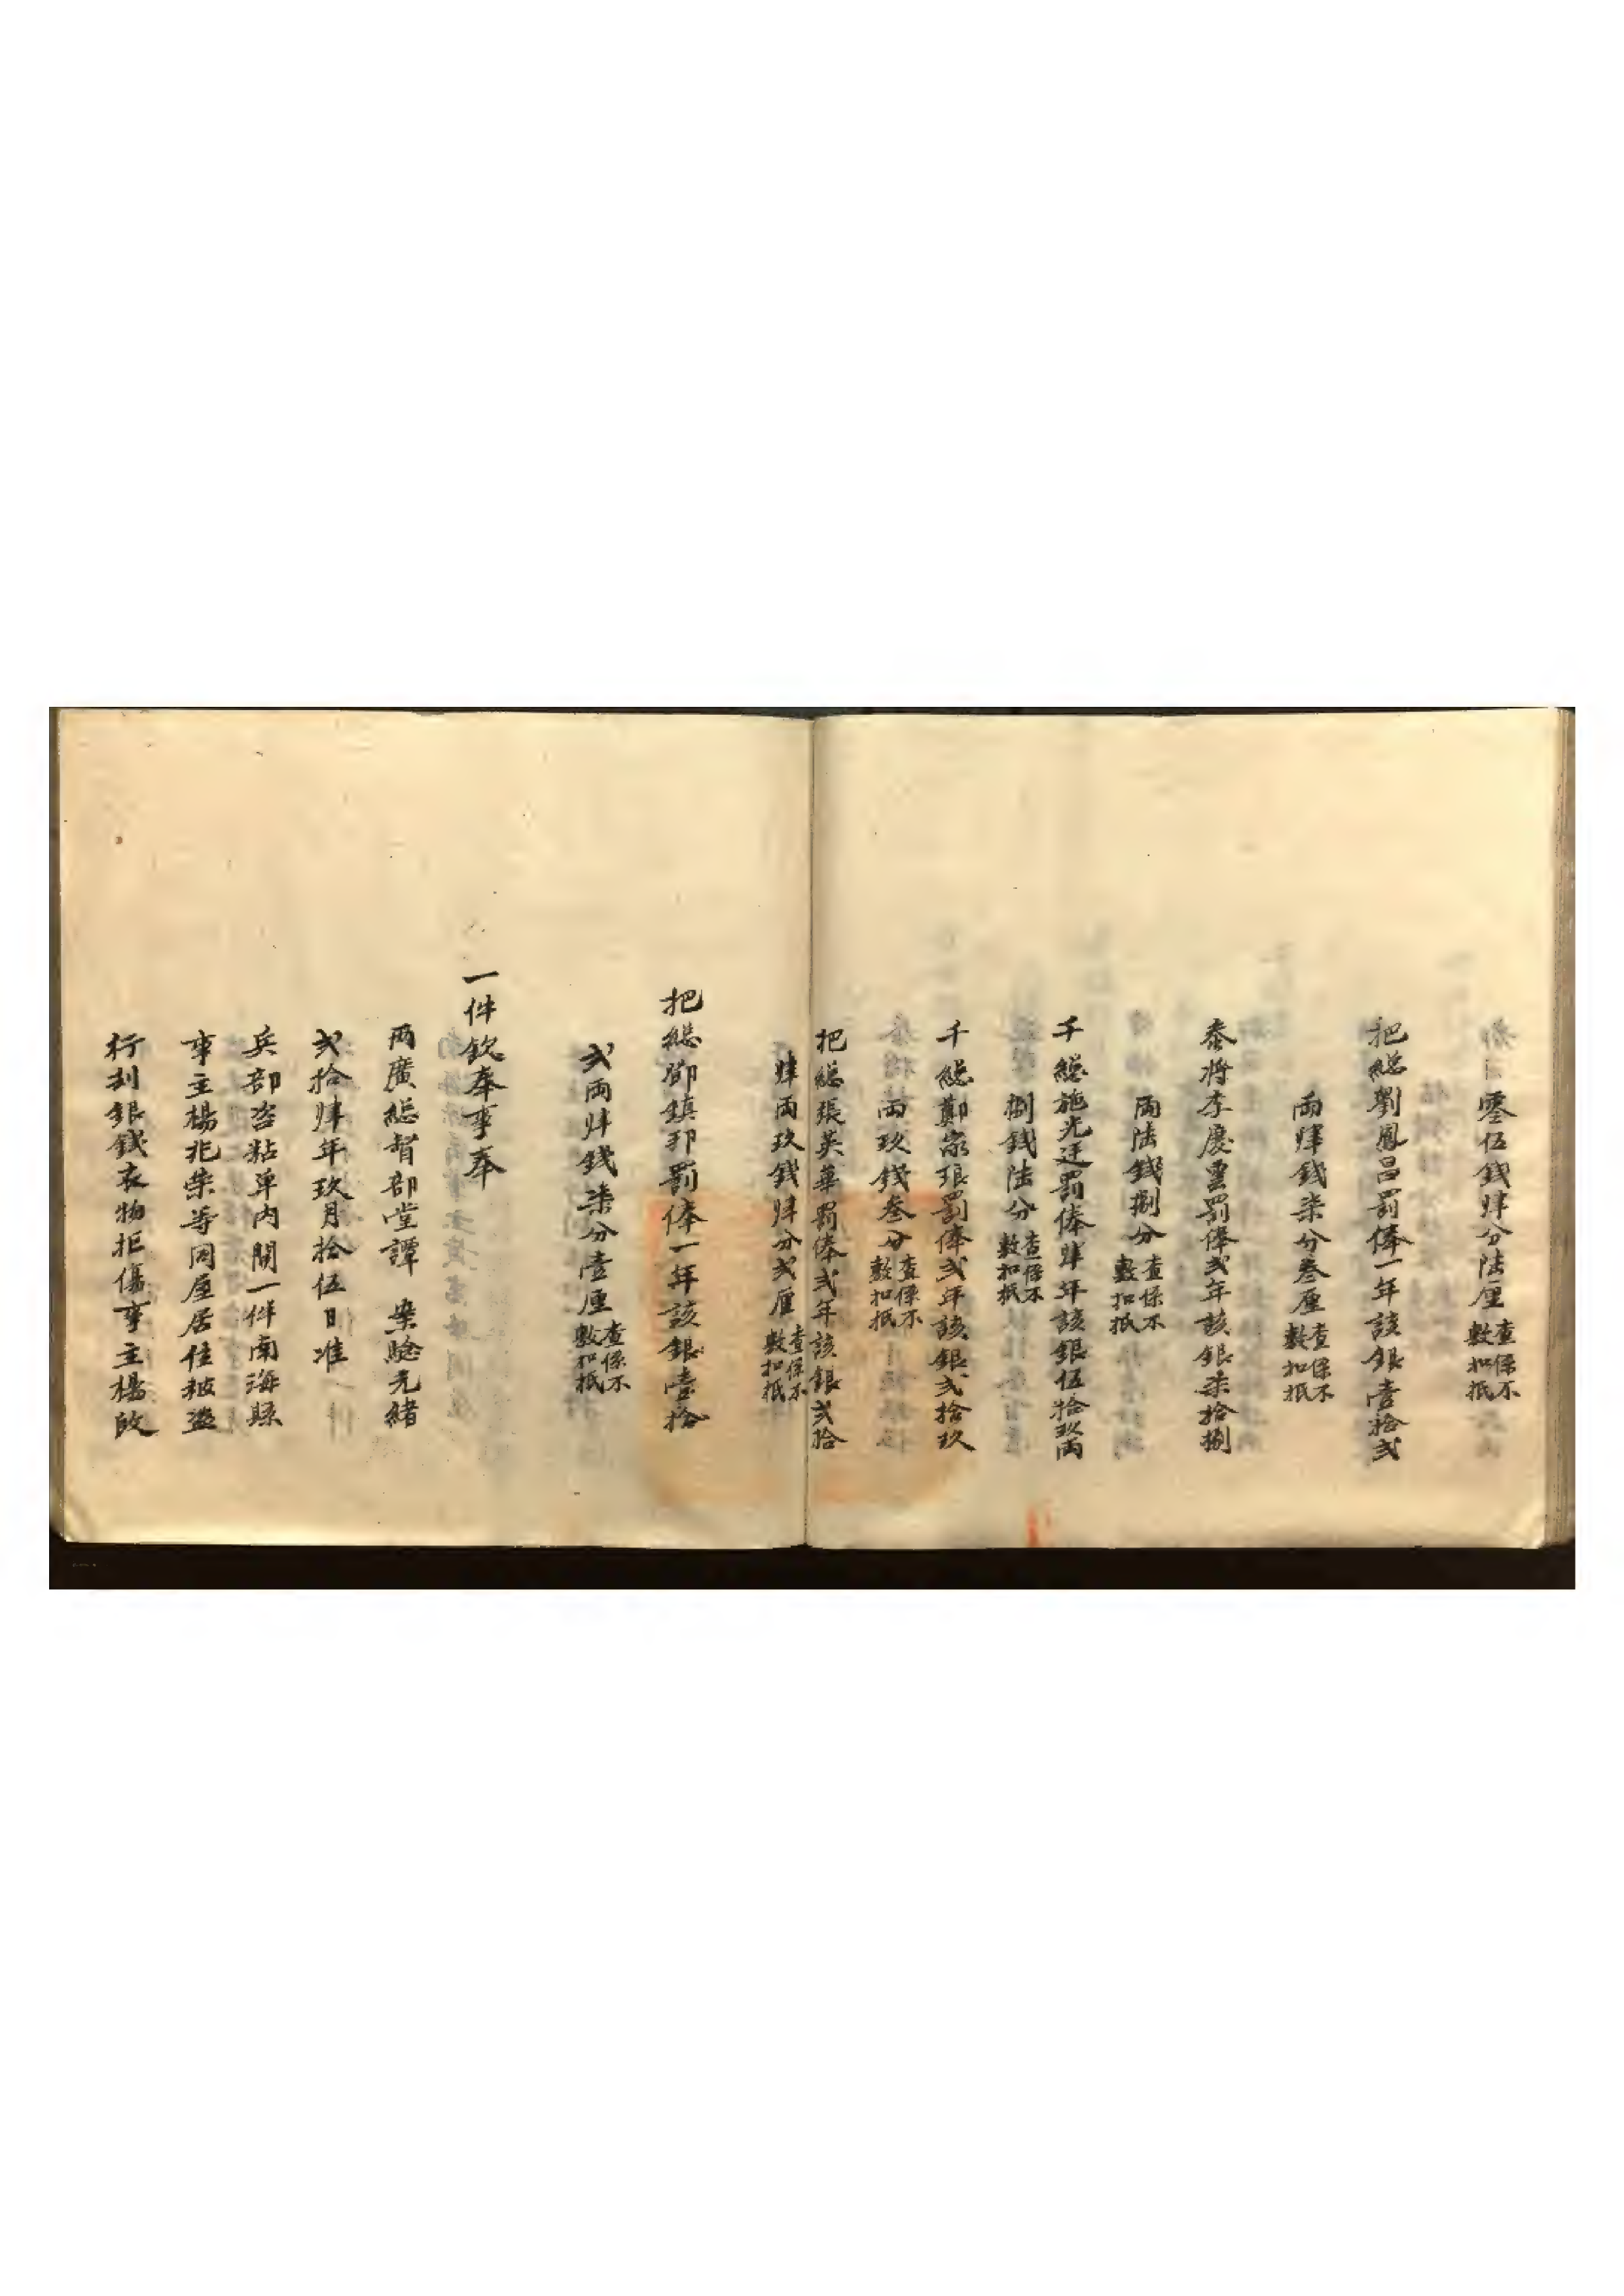 零伍錢肆分陸厘查係不敷扣抵
把總劉鳳昌罰俸一年該銀壹拾弍
兩肆錢柒分叁厘查係不敷扣抵
叅將李慶雲罰俸弍年該銀柒拾捌
兩陸錢捌分查係不敷扣抵
千總施光廷罰俸肆年該銀伍拾玖兩
捌錢陸分查係不敷扣抵
千總鄭家琅罰俸弍年該銀弍拾玖
兩玖錢叁分查係不敷扣抵
把總張英華罰俸弍年該銀弍拾
肆兩玖錢肆分弍厘查係不敷扣抵
把總鄧鎮邦罰俸一年該銀壹拾
弍兩肆錢柒分壹厘查係不敷扣抵
一件欽奉事奉
兩廣總督部堂譚 案驗光緒
弍拾肆年玖月拾伍日准
兵部咨粘單內開一件南海縣
事主楊兆榮等同屋居住被盜
行刦銀錢衣物拒傷事主楊啟